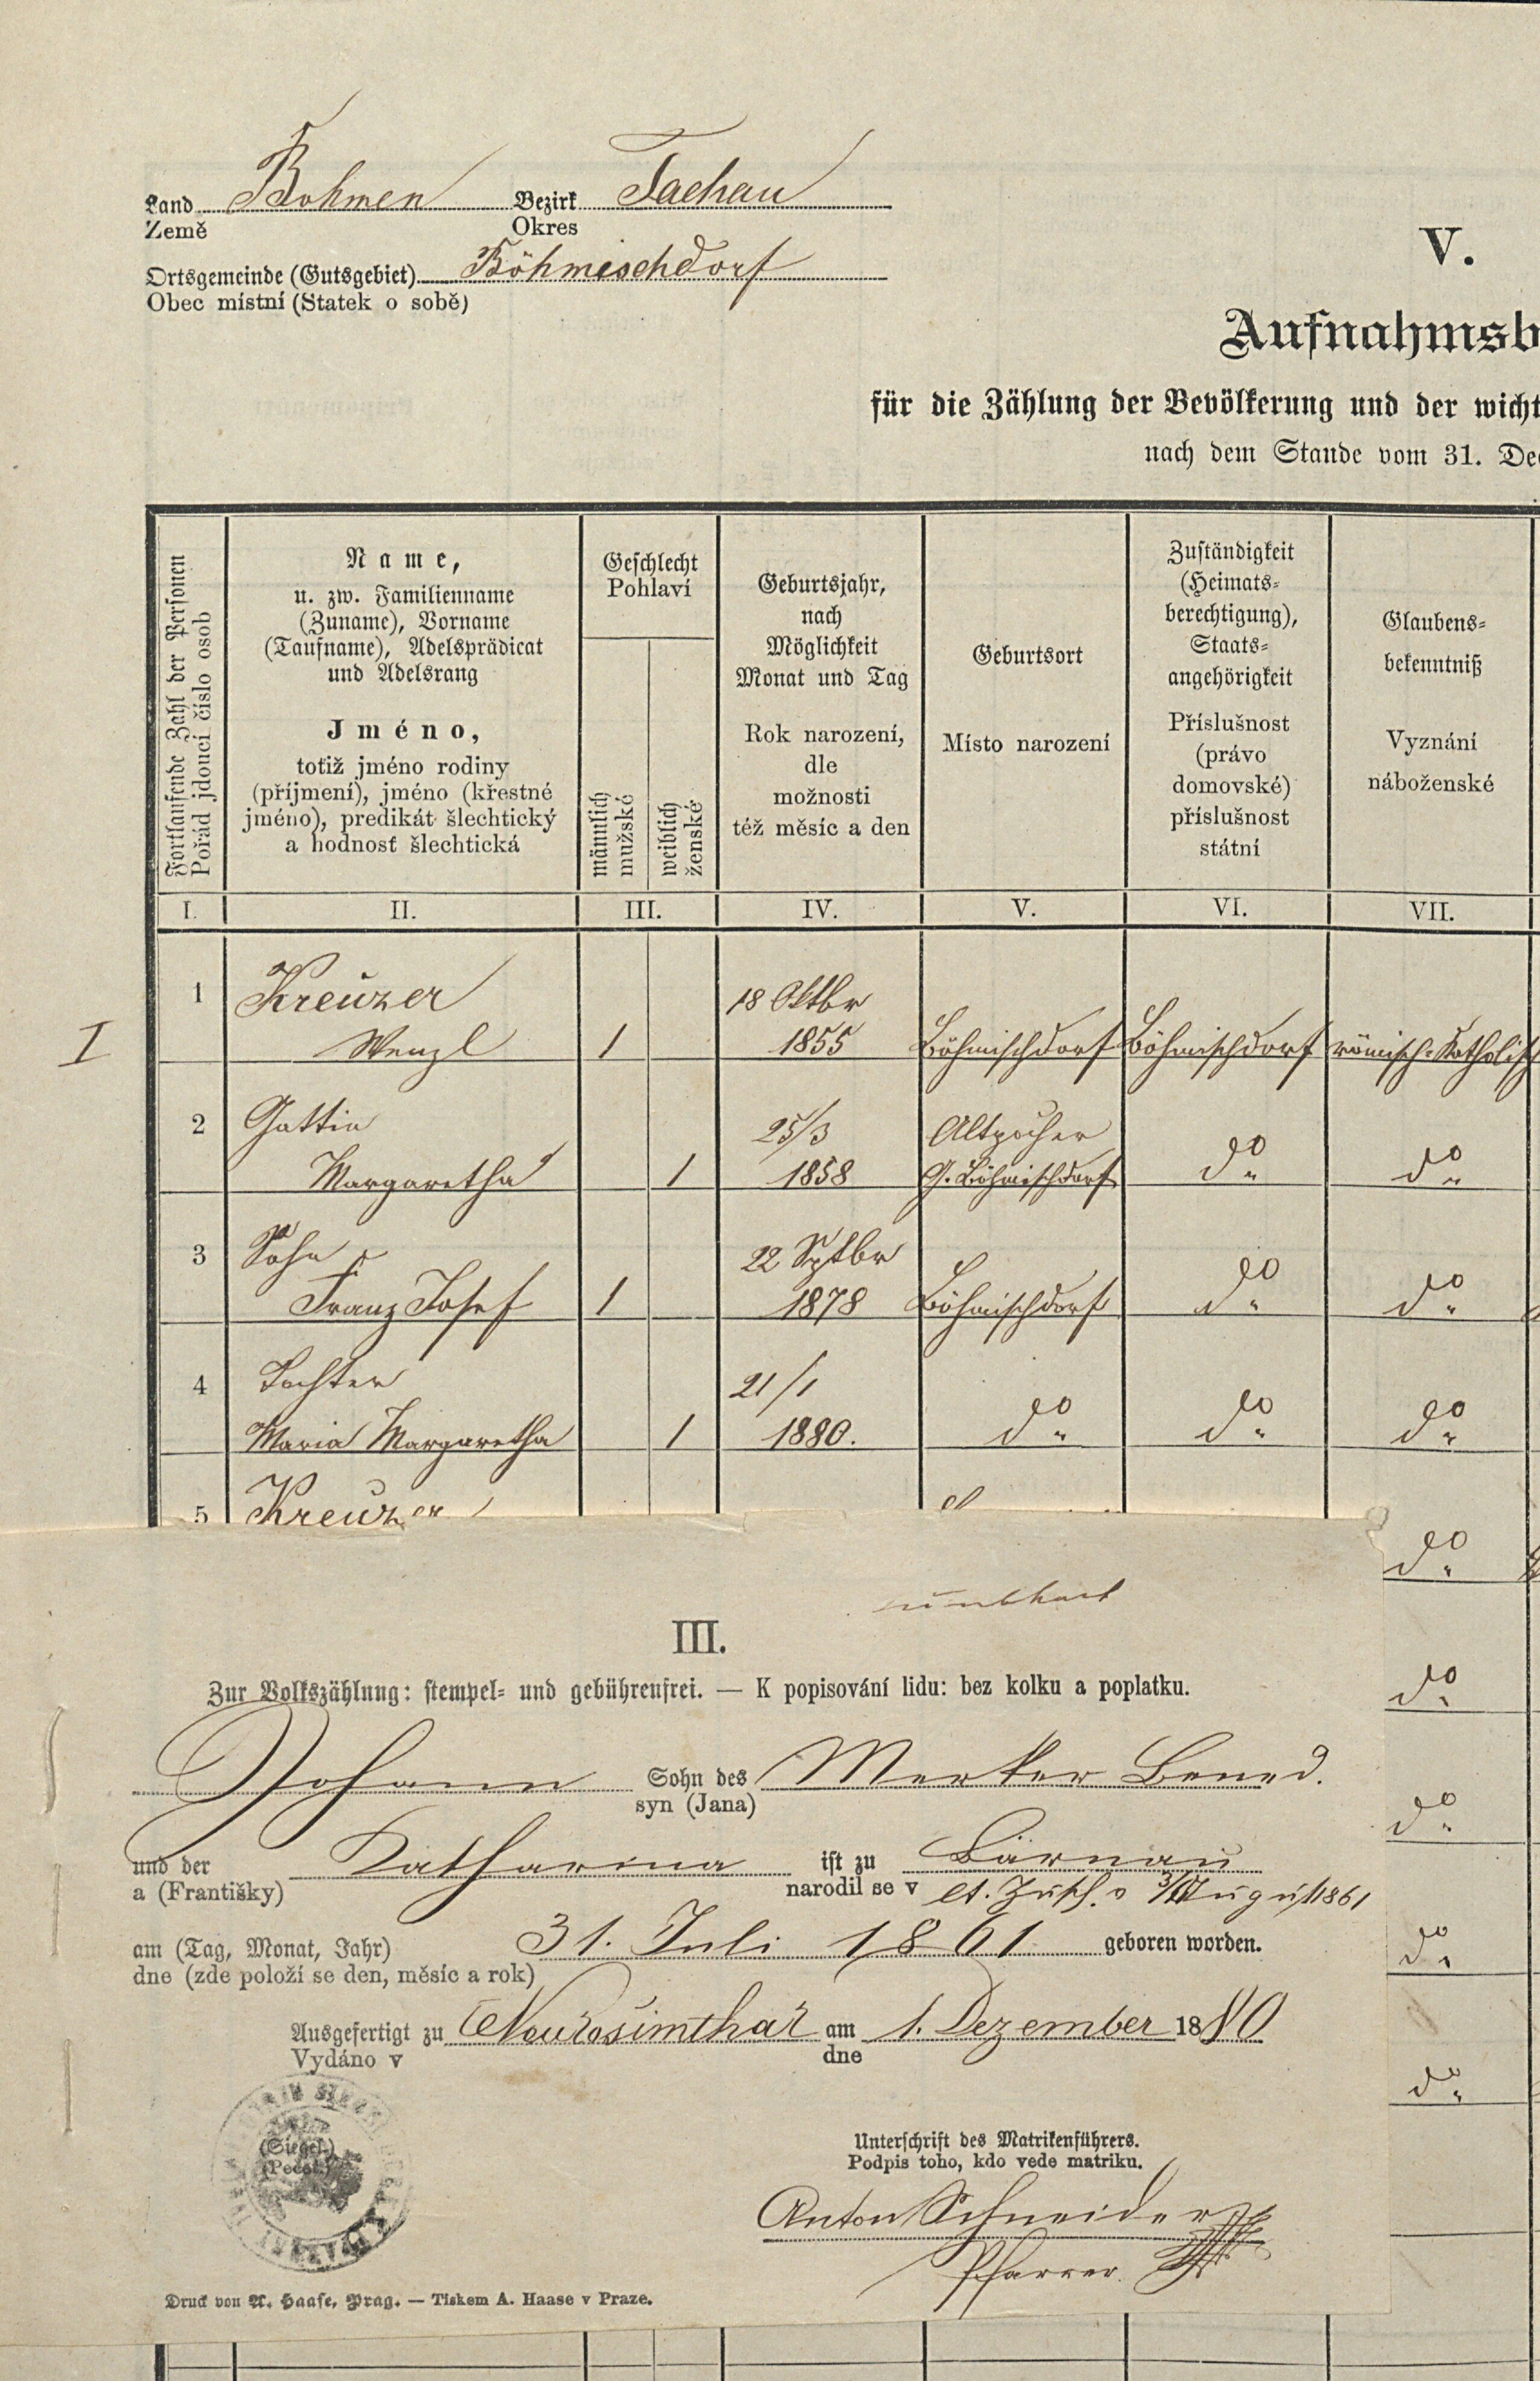 Land Böhmen Bezirk Tachau
Země Okres
Ortsgemeinde (Gutsgebiet) Böhmischdorf
Obec místní (Statek o sobě)
V.
Aufnahmsb
für die Zählung der Bevölkerung und der wicht
nach dem Stande vom 31. Dec
Fortlaufende Zahl der Personen
Pořád jdoucí číslo osob
Name,
u. zw. Familienname
(Zuname), Vorname
(Taufname), Adelsprädicat
und Adelsrang
Jméno,
totiž jméno rodiny
(příjmení), jméno (křestné
jméno), predikát šlechtický
a hodnosť šlechtická
Geschlecht
Pohlaví
männlich
mužské
weiblich
ženské
Geburtsjahr,
nach
Möglichkeit
Monat und Tag
Rok narození,
dle
možnosti
též měsíc a den
Geburtsort
Místo narození
Zuständigkeit
(Heimats-
berechtigung),
Staats-
angehörigkeit
Příslušnost
(právo
domovské)
příslušnost
státní
Glaubens-
bekenntniß
Vyznání
náboženské
I. II. III. IV. V. VI. VII.
1 Kreuzer 18 Oktbr
I Wenzl 1 1855 Böhmischdorf Böhmischdorf römisch-Katholisch
2 Gattin 25/3 Altzocher
Margaretha 1 1858 G. Böhmischdorf do do
3 Sohn 22 Sptbr
Franz Josef 1 1878 Böhmischdorf do do
4 Tochter 21/1
Maria Margaretha 1 1880. do do do
5 Kreuzer
do
III.
Zur Volkszählung: stempel- und gebührenfrei. — K popisování lidu: bez kolku a poplatku.
do
Johann Sohn des Merker Bened.
syn (Jana)
do
und der Katharina ist zu Bärnau
a (Františky) narodil se v August 1861
am (Tag, Monat, Jahr) 31. Juli 1861 geboren worden.
dne (zde položí se den, měsíc a rok)
do
Ausgefertigt zu Neulosimthal am 1. Dezember 1880
Vydáno v dne
do
(Siegel.)
(Pečeť.)
Unterschrift des Matrikenführers.
Podpis toho, kdo vede matriku.
Anton Schneider
Pfarrer
Druck von A. Haase, Prag. — Tiskem A. Haase v Praze.